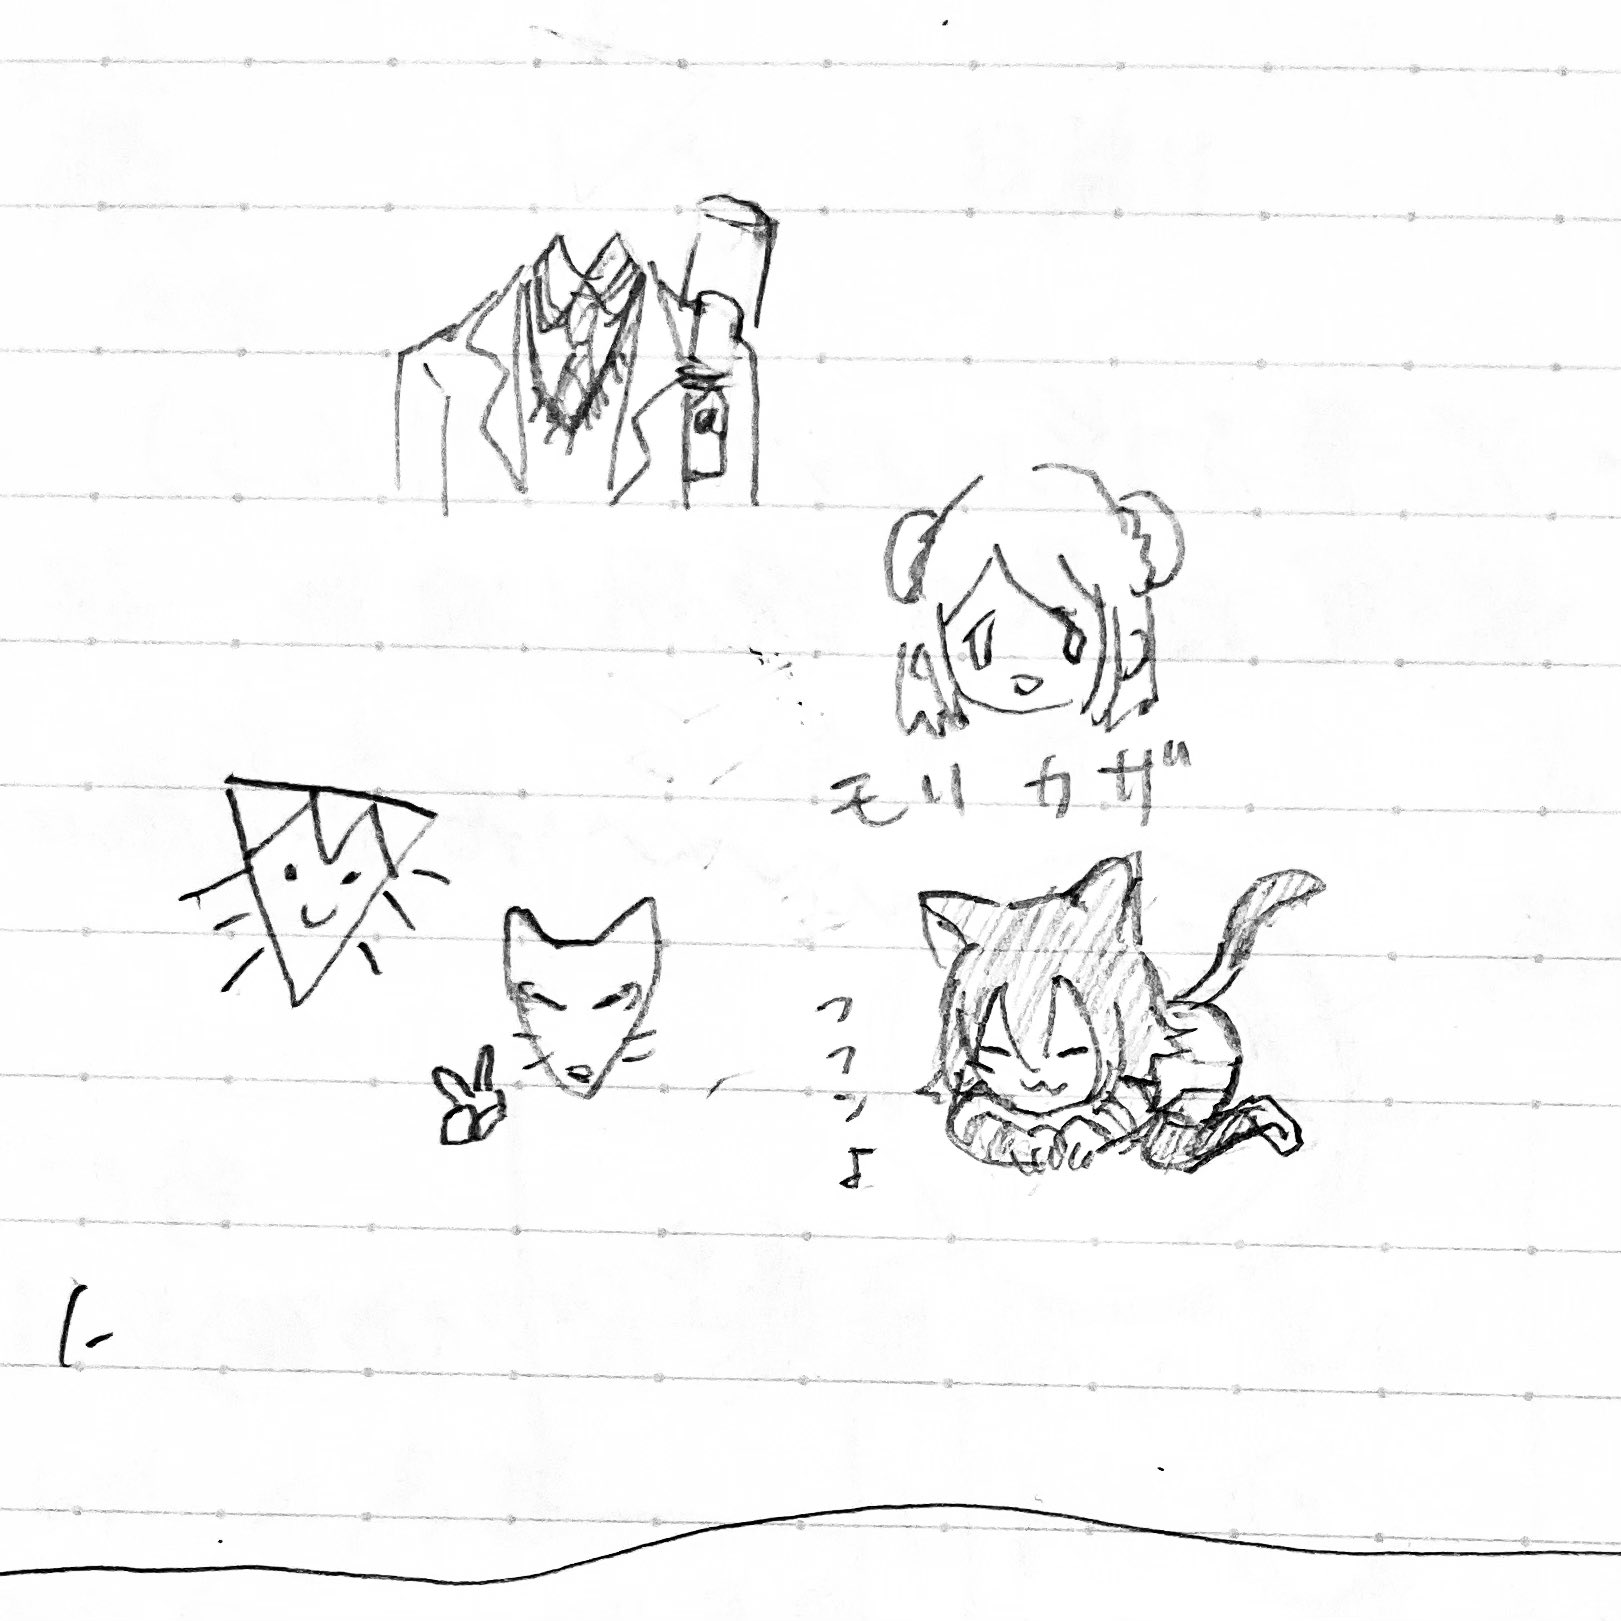 モリカザ
フフッ♪